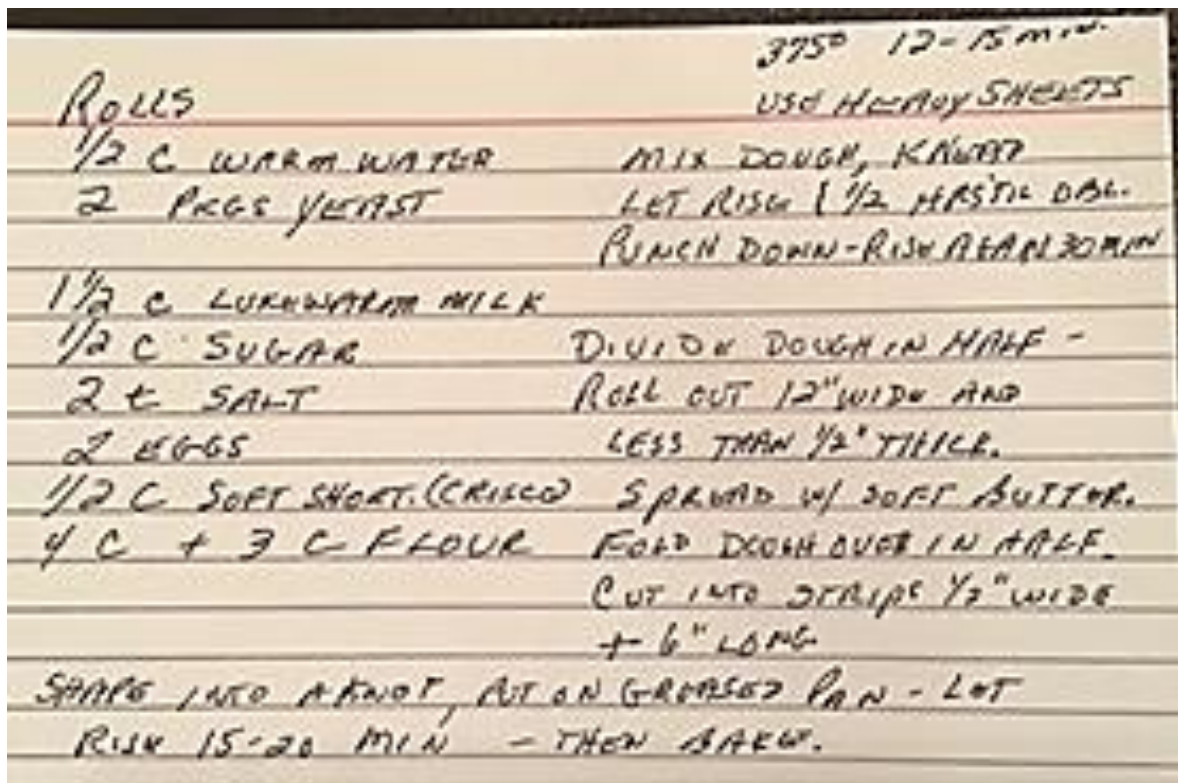 375° 12-15 MIN.
ROLLS
USE HEAVY SHEETS
1/2 C WARM WATER
2 PKGS YEAST
1 1/2 C LUKEWARM MILK
1/2 C SUGAR
2 t SALT
2 EGGS
1/2 C SOFT SHORT. (CRISCO)
4 C + 3 C FLOUR
MIX DOUGH, KNEAD
LET RISE 1 1/2 HRS 'TIL DBL.
PUNCH DOWN - RISE AGAIN 30 MIN
DIVIDE DOUGH IN HALF -
ROLL OUT 12" WIDE AND
LESS THAN 1/2" THICK.
SPREAD W/ SOFT BUTTER.
FOLD DOUGH OVER IN HALF.
CUT INTO STRIPS 1/2" WIDE
+ 6" LONG
SHAPE INTO A KNOT, PUT ON GREASED PAN - LET
RISE 15-20 MIN - THEN BAKE.